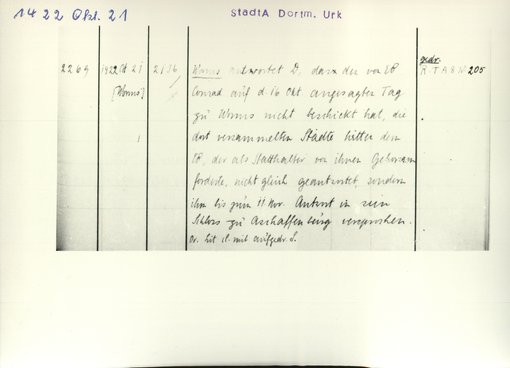 1422 Okt. 21
StadtA Dortm. Urk
2269 1422 Ok 21 2136 Worms antwortet D, dass der von EB gedr.
[Worms] Conrad auf d 16 Okt angesagten Tag R T A 8 N 205
zu Worms nicht beschickt hat, die
dort versammelten Städte hätten dem
EB, der als Statthalter von ihnen Gehorsam
forderte, nicht gleich geantwortet, sondern
ihm bis zum 11 Nov. Antwort in sein
Schloss zu Aschaffenburg versprochen.
Or. lit cl mit aufgedr. S.